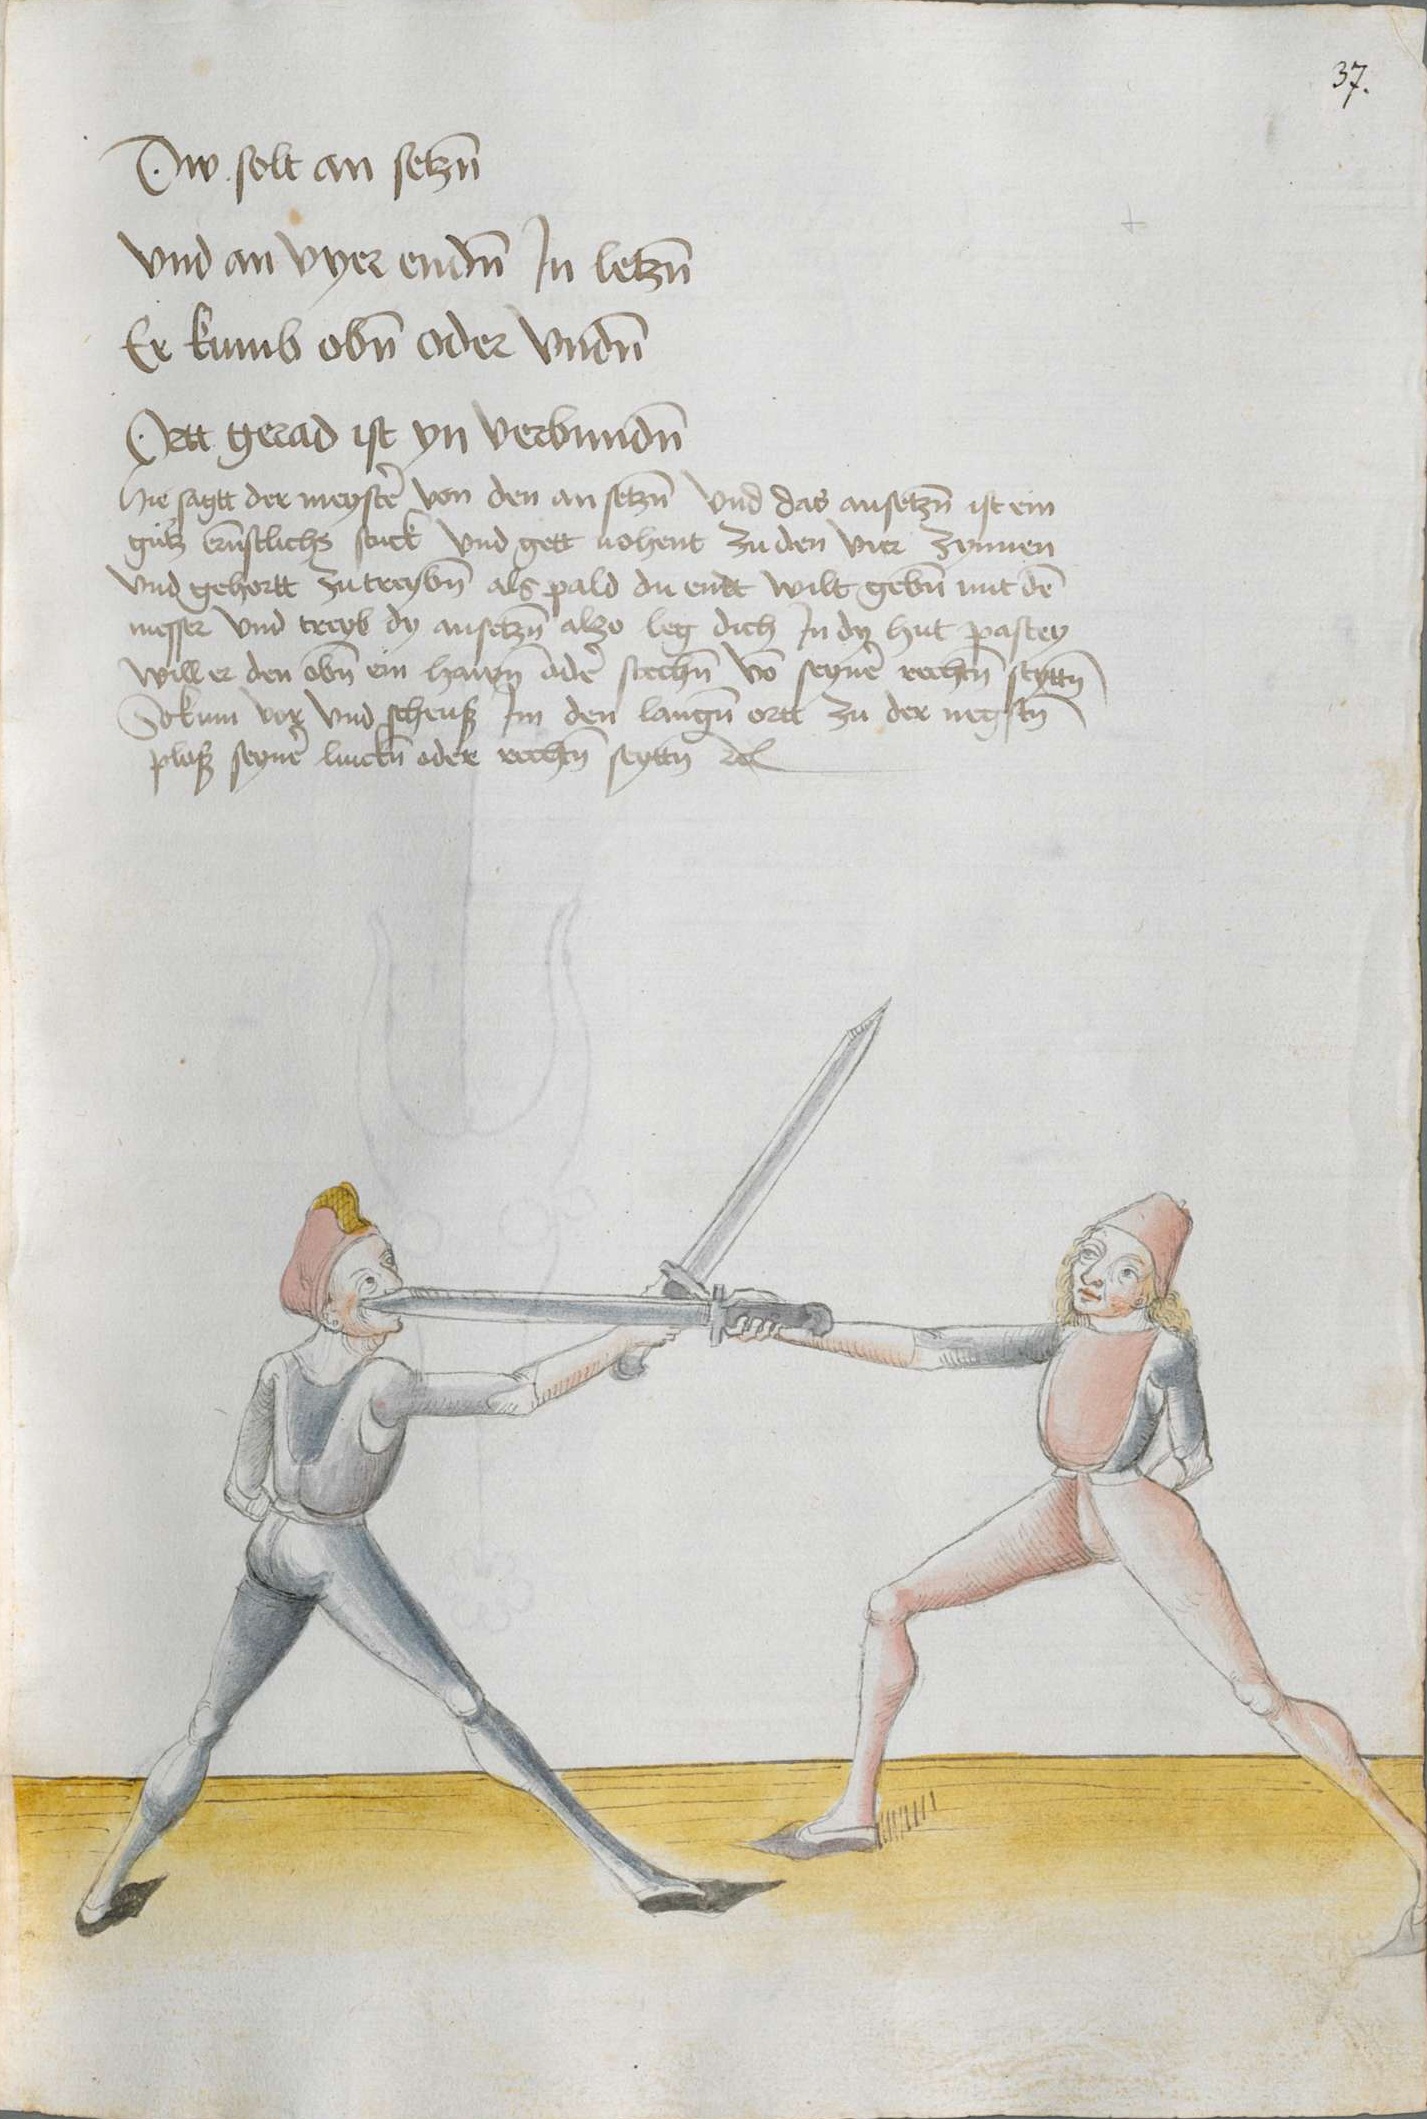 37.
Dw solt an setzn̄
vnd an vyer endn̄ In letzn̄
Er kumb obn̄ oder vndn̄
Ortt gerad ist yn verbundn̄
Hie sagtt der meyster̄ von den an setzn̄ vnd das ansetzn̄ ist ein
gutz ernstlichs stuck vnd gett nohent zu den vier zynnen
vnd gehortt zu treybn̄ als pald du entt wilt gebn̄ mit dē
messer vnd treyb dy ansetzn̄ alzo leg dich In dy hut pastey
will er den obn̄ ein hawn̄ oder̄ stechn̄ vō seyner̄ rechtn̄ seyttn̄
So kum vor vnd scheuß Im den langn̄ ortt zu der negstn̄
ploß seyner̄ linckn̄ oder rechtn̄ seyttn̄